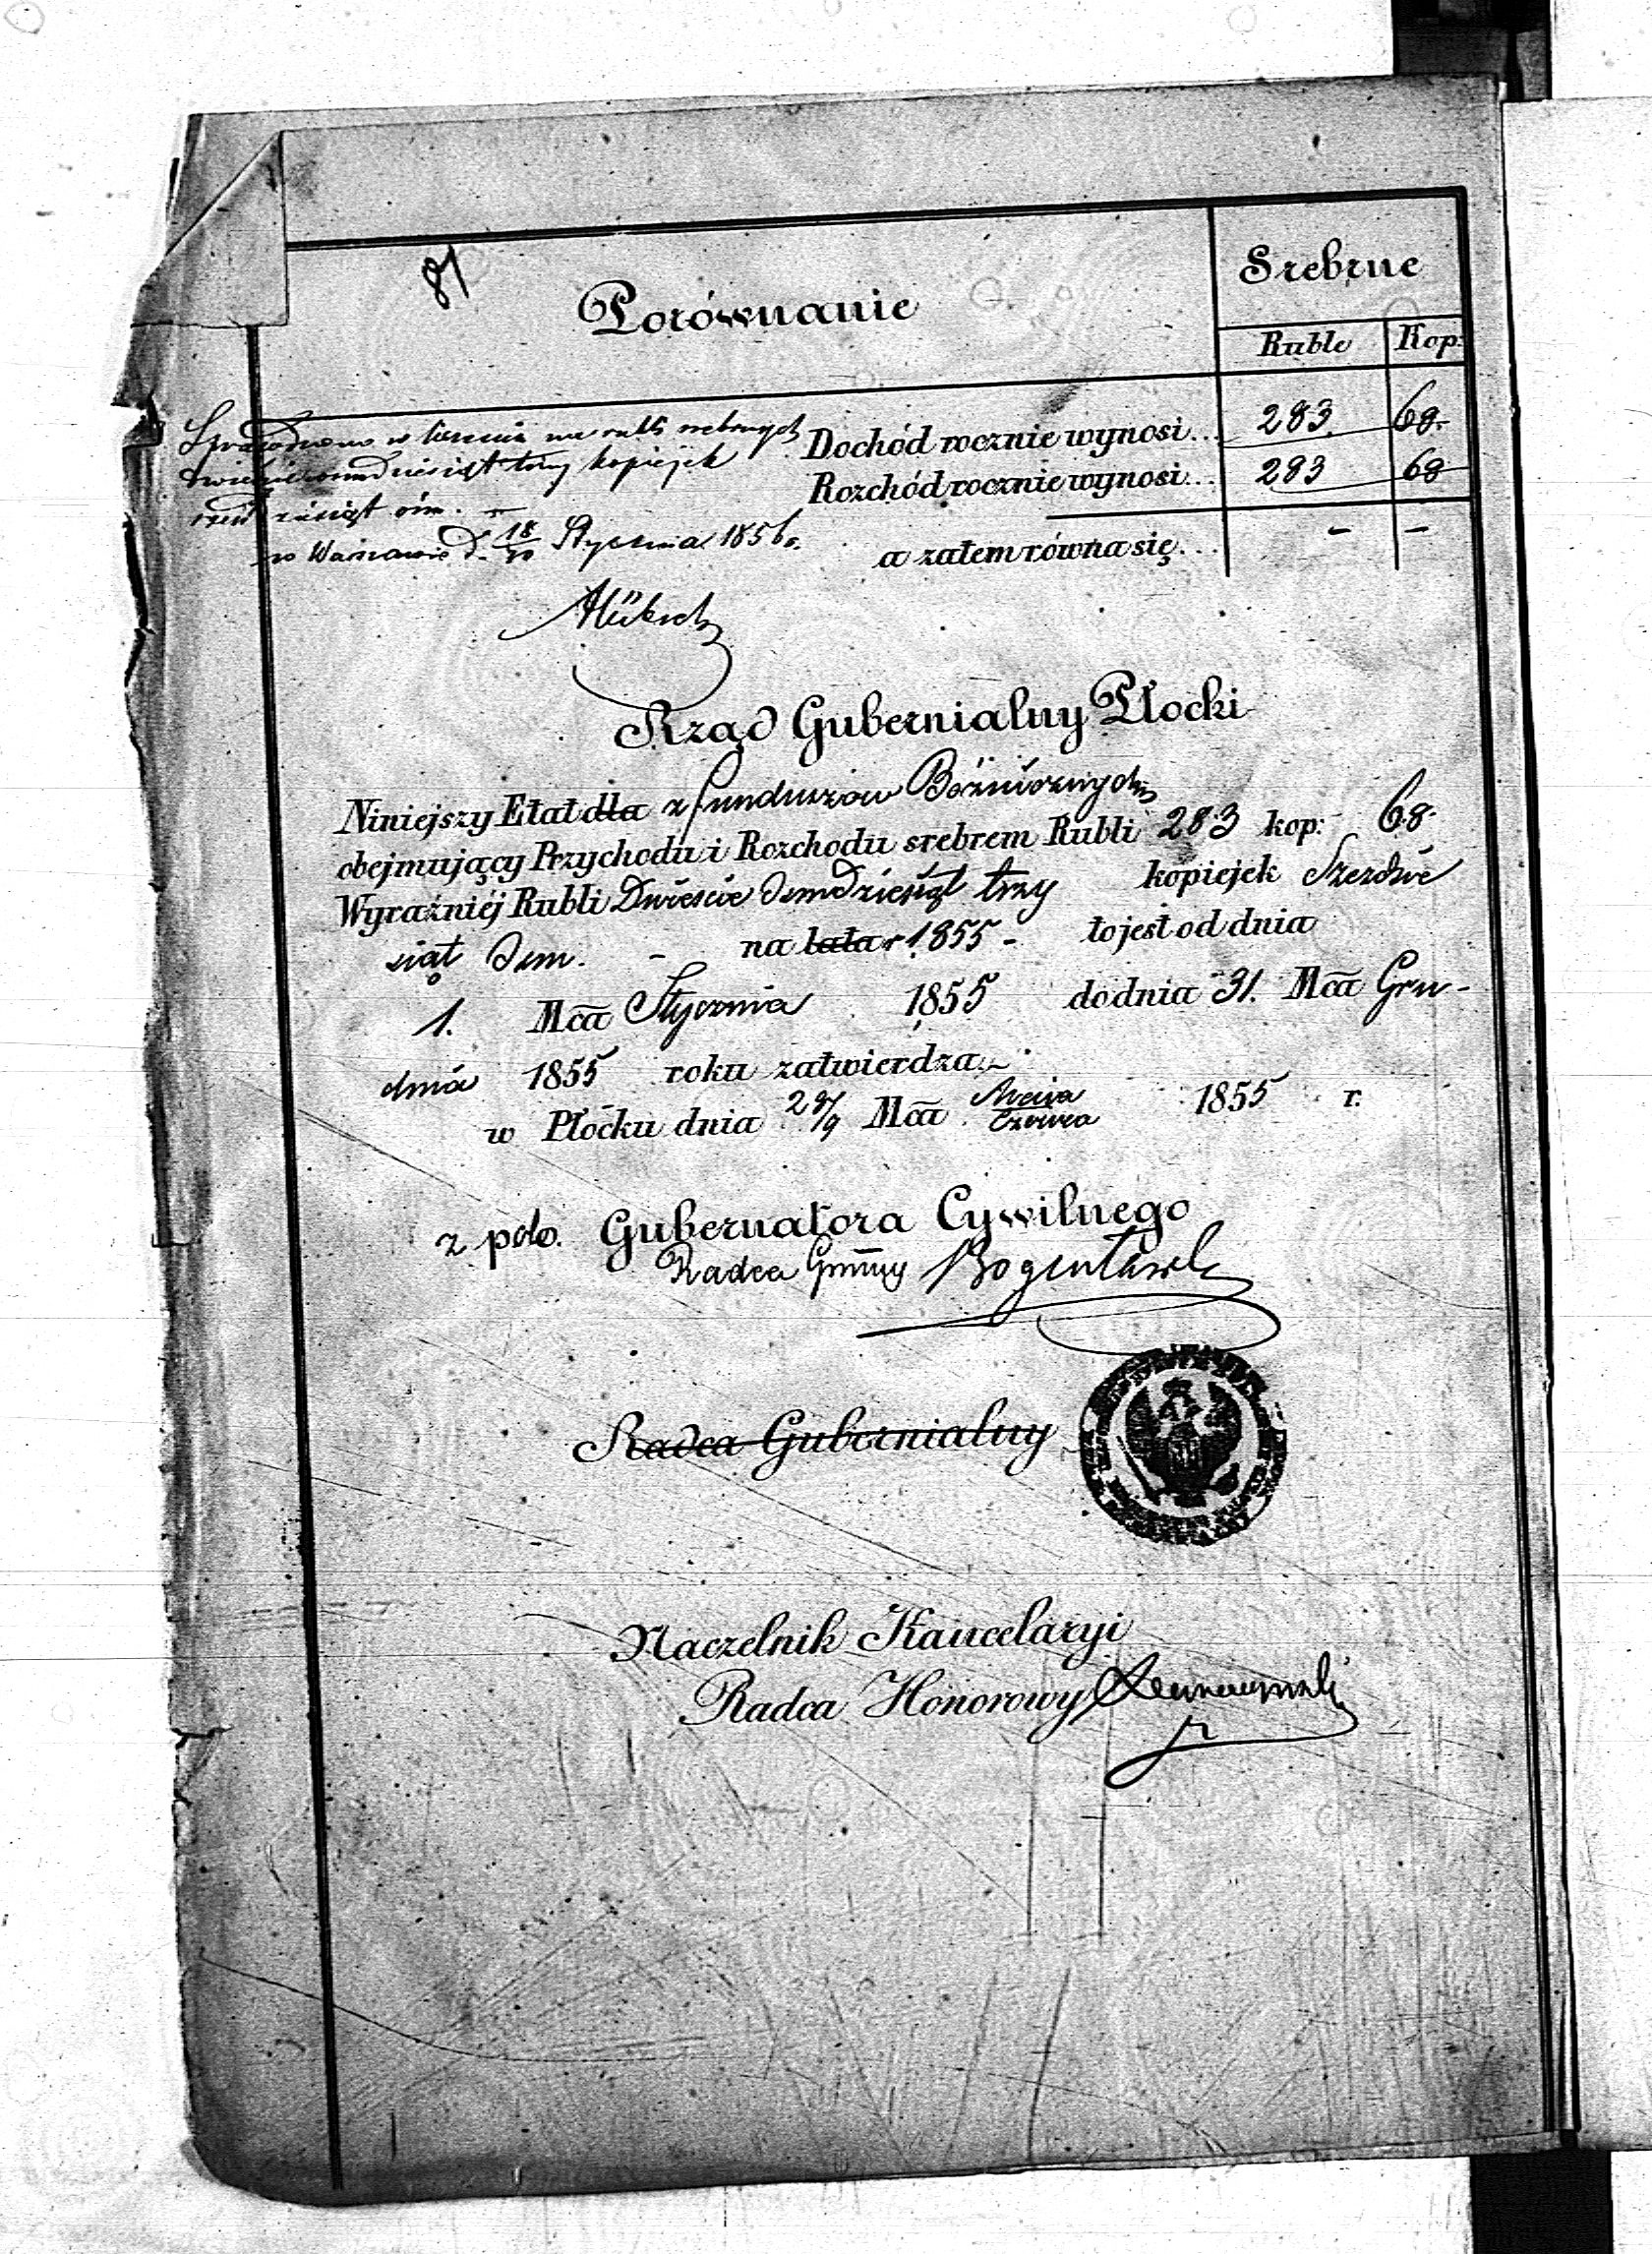 81
Porównanie
Srebrne
Ruble Kop:
Dochód rocznie wynosi... 283. 68.
Rozchód rocznie wynosi... 283 68
a zatem równa się... - -
Sprawdzono w na rubli srebrnych
dwieście ośmdziesiąt trzy kopiejek
sześdziesiąt ośm.
w Warszawie d. 18/30 Stycznia 1856 r.
Rząd Gubernialny Płocki
Niniejszy Etat dla z funduszów Bóżnicznych
obejmujący Przychodu i Rozchodu srebrem Rubli 283 kop: 68.
Wyraźniej Rubli Dwieście Ośmdziesiąt trzy kopiejek Szezdzie
siąt Ośm. - na lata r 1855 - to jest od dnia
1. Mca Stycznia 1855 do dnia 31. Mca Gru-
dnia 1855 roku zatwierdza.
w Płocku dnia 28/9 Mca Maja/Czerwca 1855 r.
z polo. Gubernatora Cywilnego
Radca Gubny
Radca Gubernialny
Naczelnik Kancelaryi
Radca Honorowy